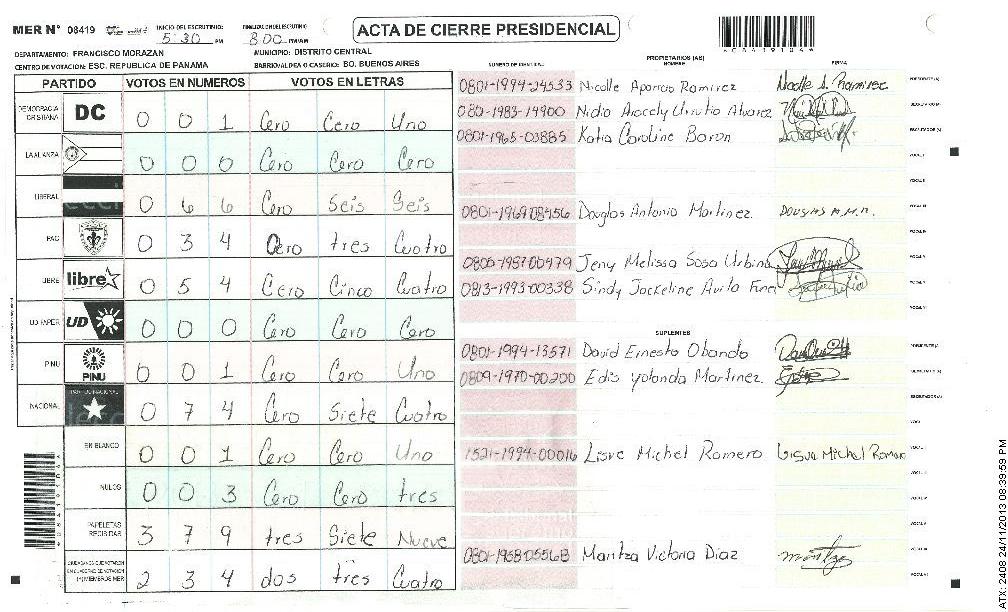 MER Nº 08419 INICIO DEL ESCRUTINIO: 5:30 PM FINALIZACION DEL ESCRUTINIO 8:00 PM/AM ACTA DE CIERRE PRESIDENCIAL
DEPARTAMENTO: FRANCISCO MORAZAN MUNICIPIO: DISTRITO CENTRAL
CENTRO DE VOTACION: ESC. REPUBLICA DE PANAMA BARRIO/ALDEA O CASERIO: BO. BUENOS AIRES
PARTIDO VOTOS EN NUMEROS VOTOS EN LETRAS
DEMOCRACIA CRISTIANA DC 0 0 1 Cero Cero Uno
LA ALIANZA 0 0 0 Cero Cero Cero
LIBERAL 0 6 6 Cero Seis Seis
PAC 0 3 4 Cero tres Cuatro
LIBRE libre 0 5 4 Cero Cinco Cuatro
UD FAPER UD 0 0 0 Cero Cero Cero
PINU PINU 0 0 1 Cero Cero Uno
NACIONAL 0 7 4 Cero Siete Cuatro
EN BLANCO 0 0 1 Cero Cero Uno
NULOS 0 0 3 Cero Cero tres
PAPELETAS RECIBIDAS 3 7 9 tres Siete Nueve
2 3 4 dos tres Cuatro
PROPIETARIOS (AS)
NOMBRE FIRMA
0801-1994-24533 Nicolle Aparicio Ramirez
080-1983-14900 Nidia Aracely Urrutia Alvarez
0801-1965-03885 Katia Caroline Baron
0801-1969-08456 Douglas Antonio Martinez DOUGLAS A.M.M.
0800-1987-00479 Jeny Melissa Sosa Urbina
0813-1993-00338 Sindy Jackeline Avila Funez
SUPLENTES
0801-1994-13571 David Ernesto Obando
0809-1970-00200 Edis Yolanda Martinez
1521-1994-00016 Michel Romero
Maritza Victoria Diaz
ATX: 2408 24/11/2013 08:39:59 PM